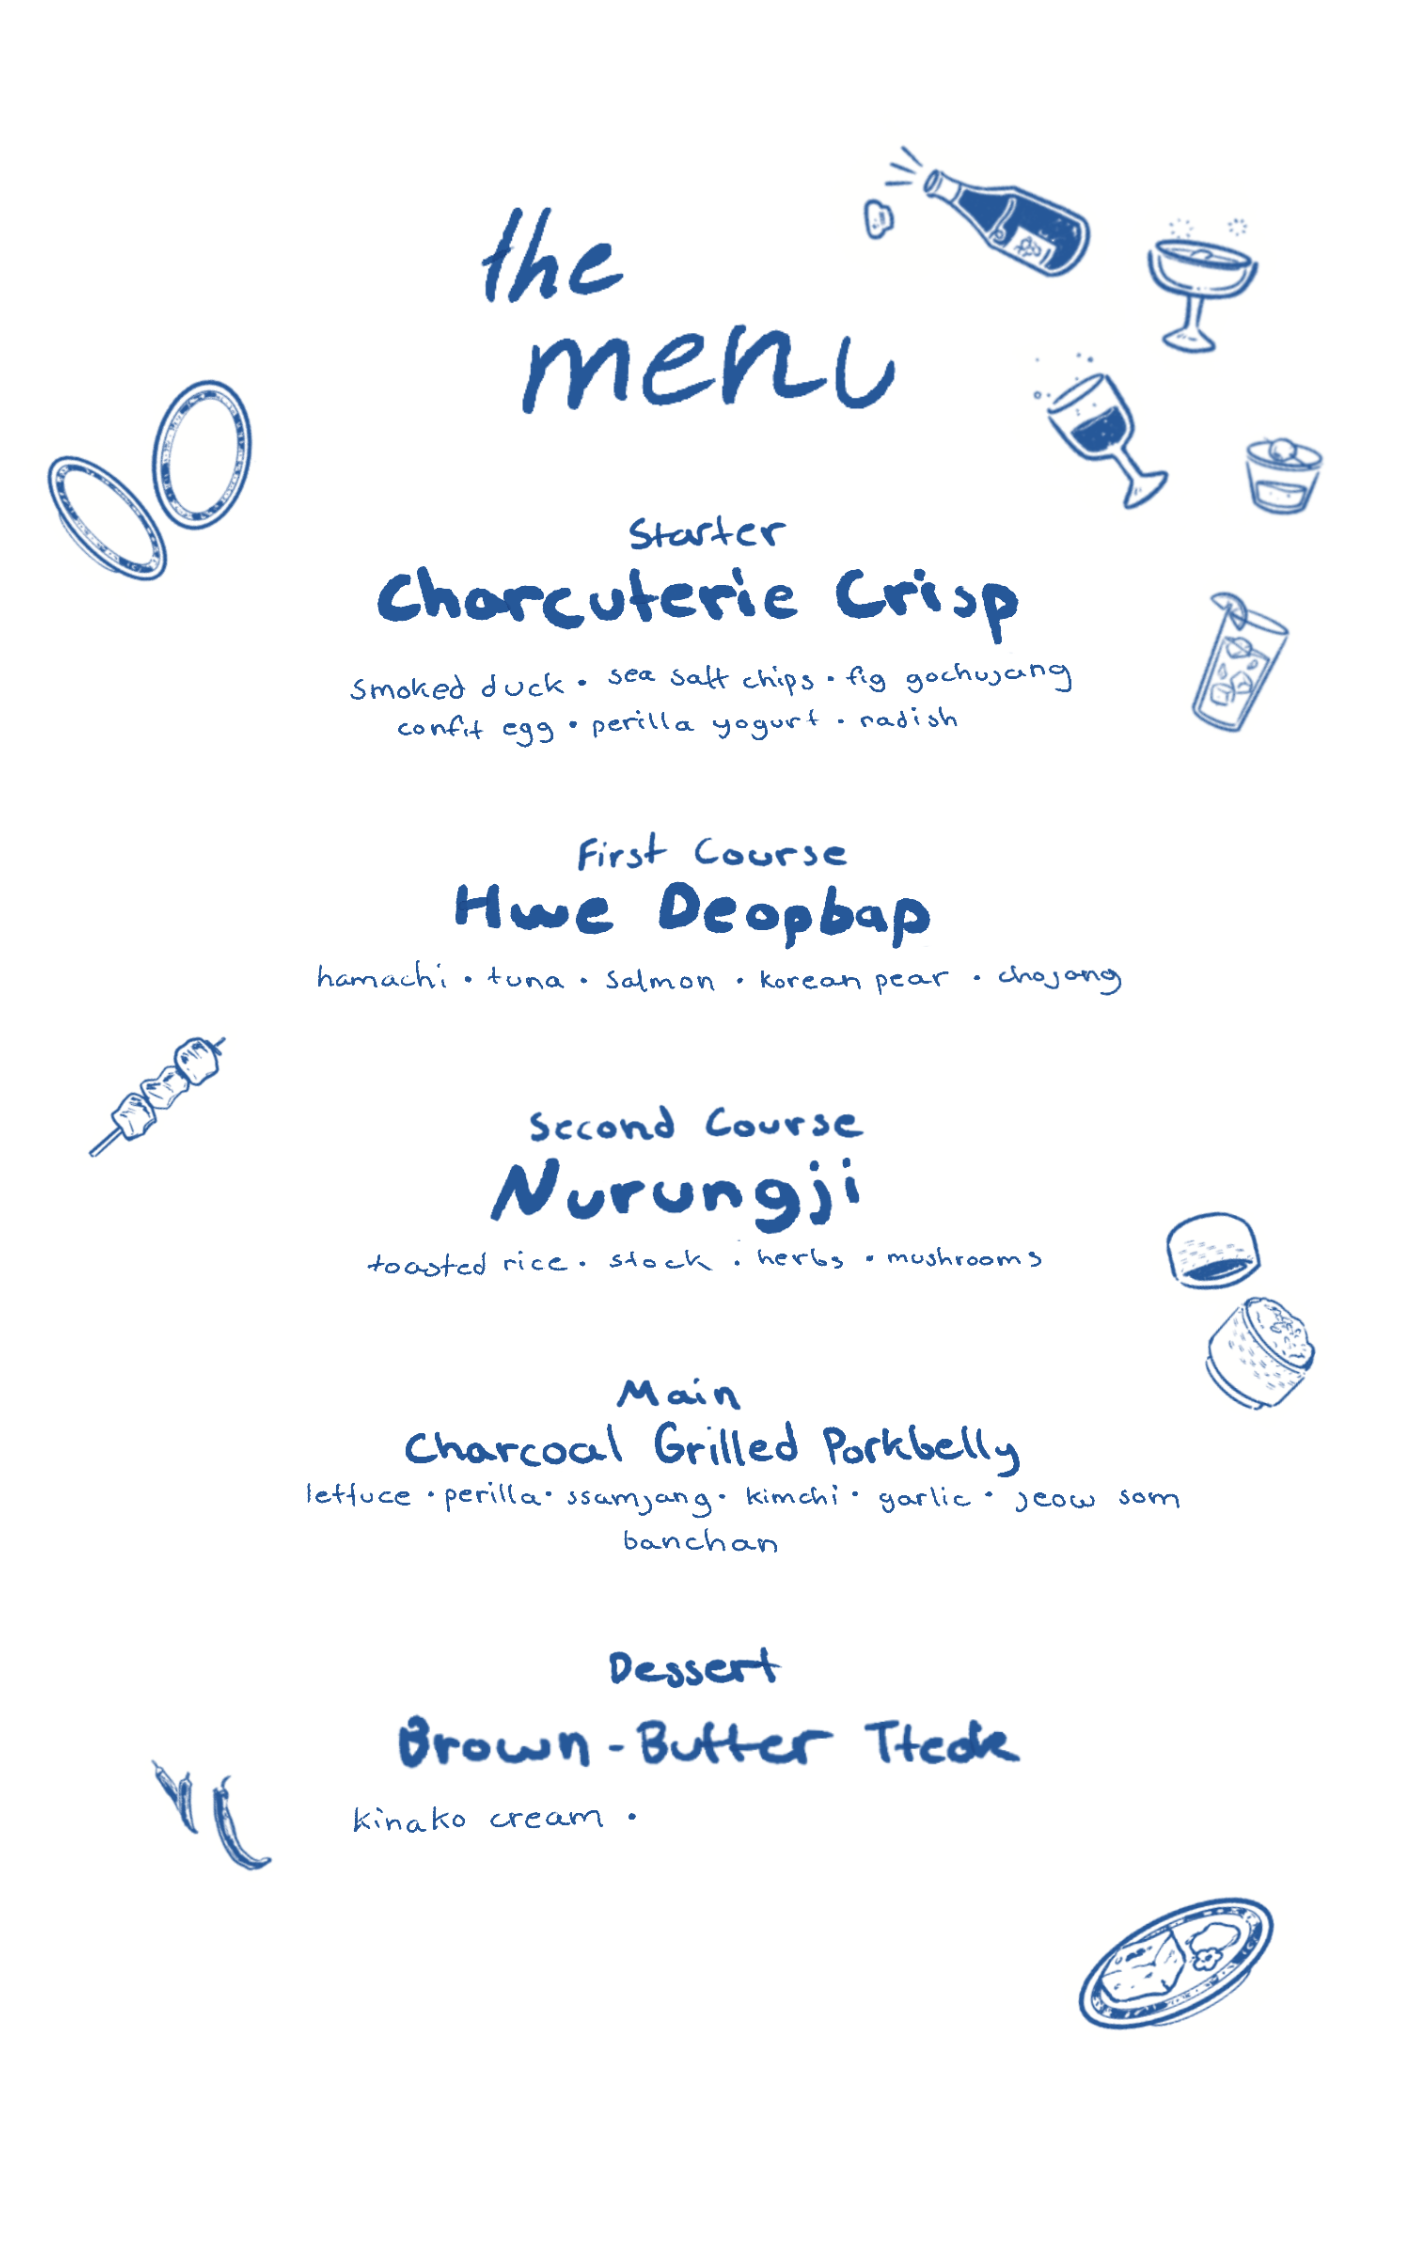 the
menu
Starter
Charcuterie Crisp
smoked duck • sea salt chips • fig gochujang
confit egg • perilla yogurt • radish
First Course
Hwe Deopbap
hamachi • tuna • salmon • korean pear • chojang
Second Course
Nurungji
toasted rice • stock • herbs • mushrooms
Main
Charcoal Grilled Porkbelly
lettuce • perilla • ssamjang • kimchi • garlic • jeow som
banchan
Dessert
Brown-Butter Tteok
kinako cream •